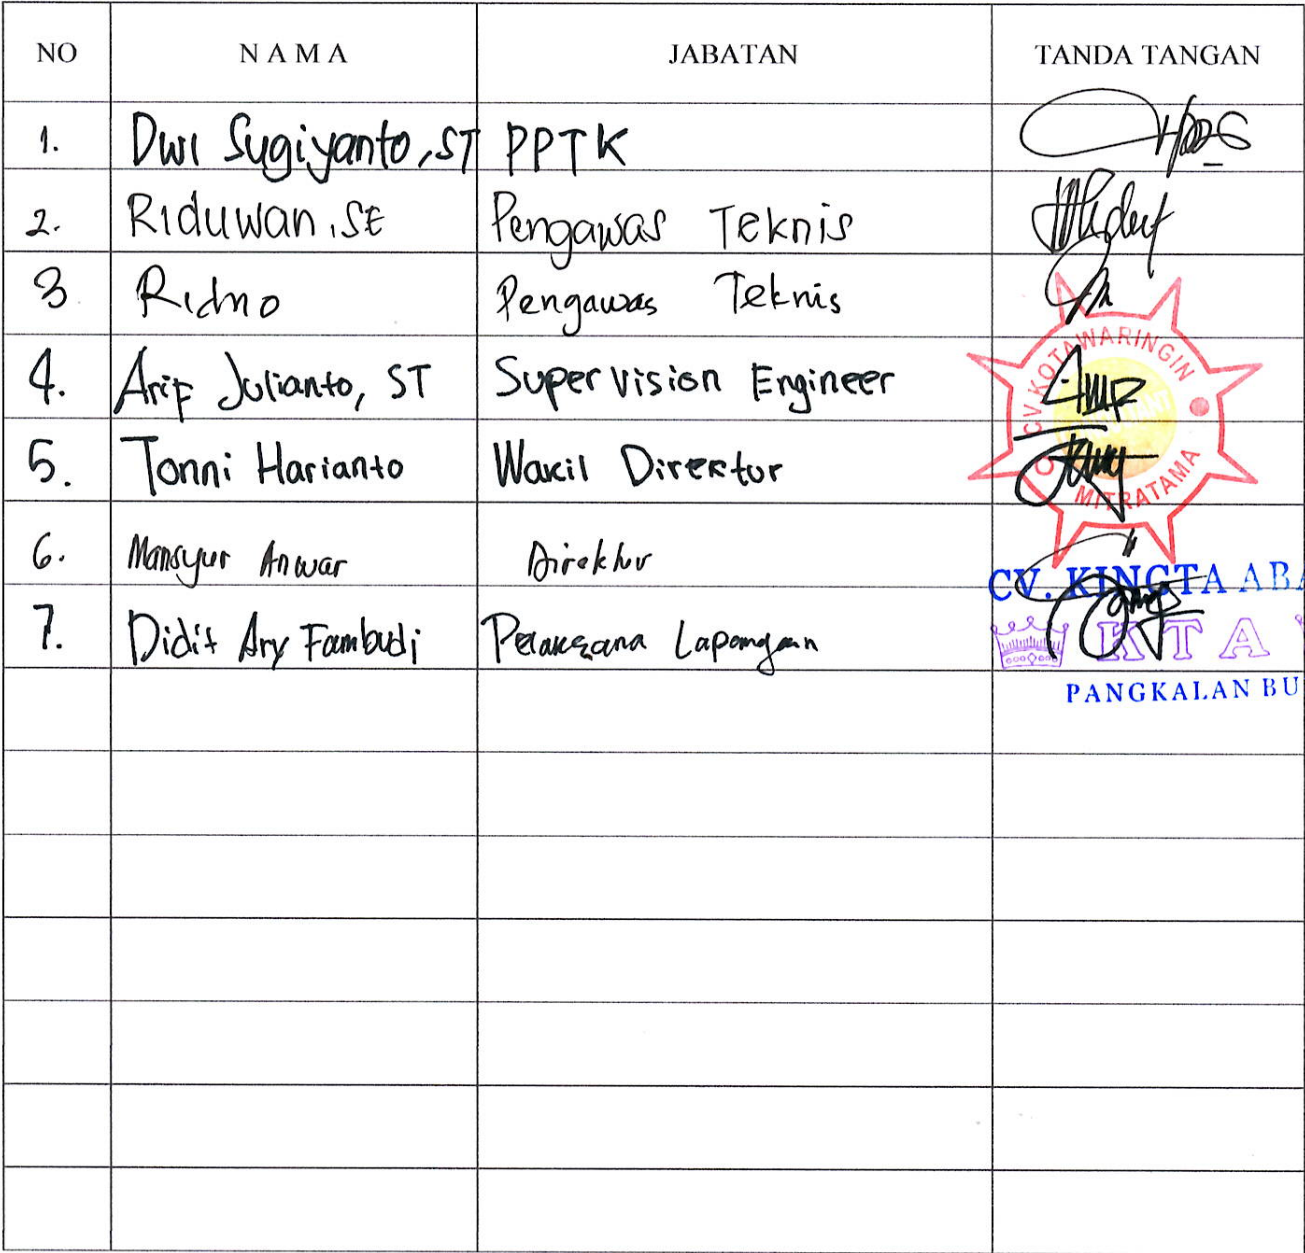 NO NAMA JABATAN TANDA TANGAN
1. Dwi Sugiyanto, ST PPTK
2. Riduwan, SE Pengawas Teknis
3 Ridno Pengawas Teknis
4. Arif Julianto, ST Supervision Engineer
5. Tonni Harianto Wakil Direktur
6. Mansyur Anwar Direktur
7. Didit Ary Fambudi Pelaksana Lapangan
CV. KOTAWARINGIN
MITRATAMA
CV. KINGTA ABA
KTA
PANGKALAN BU